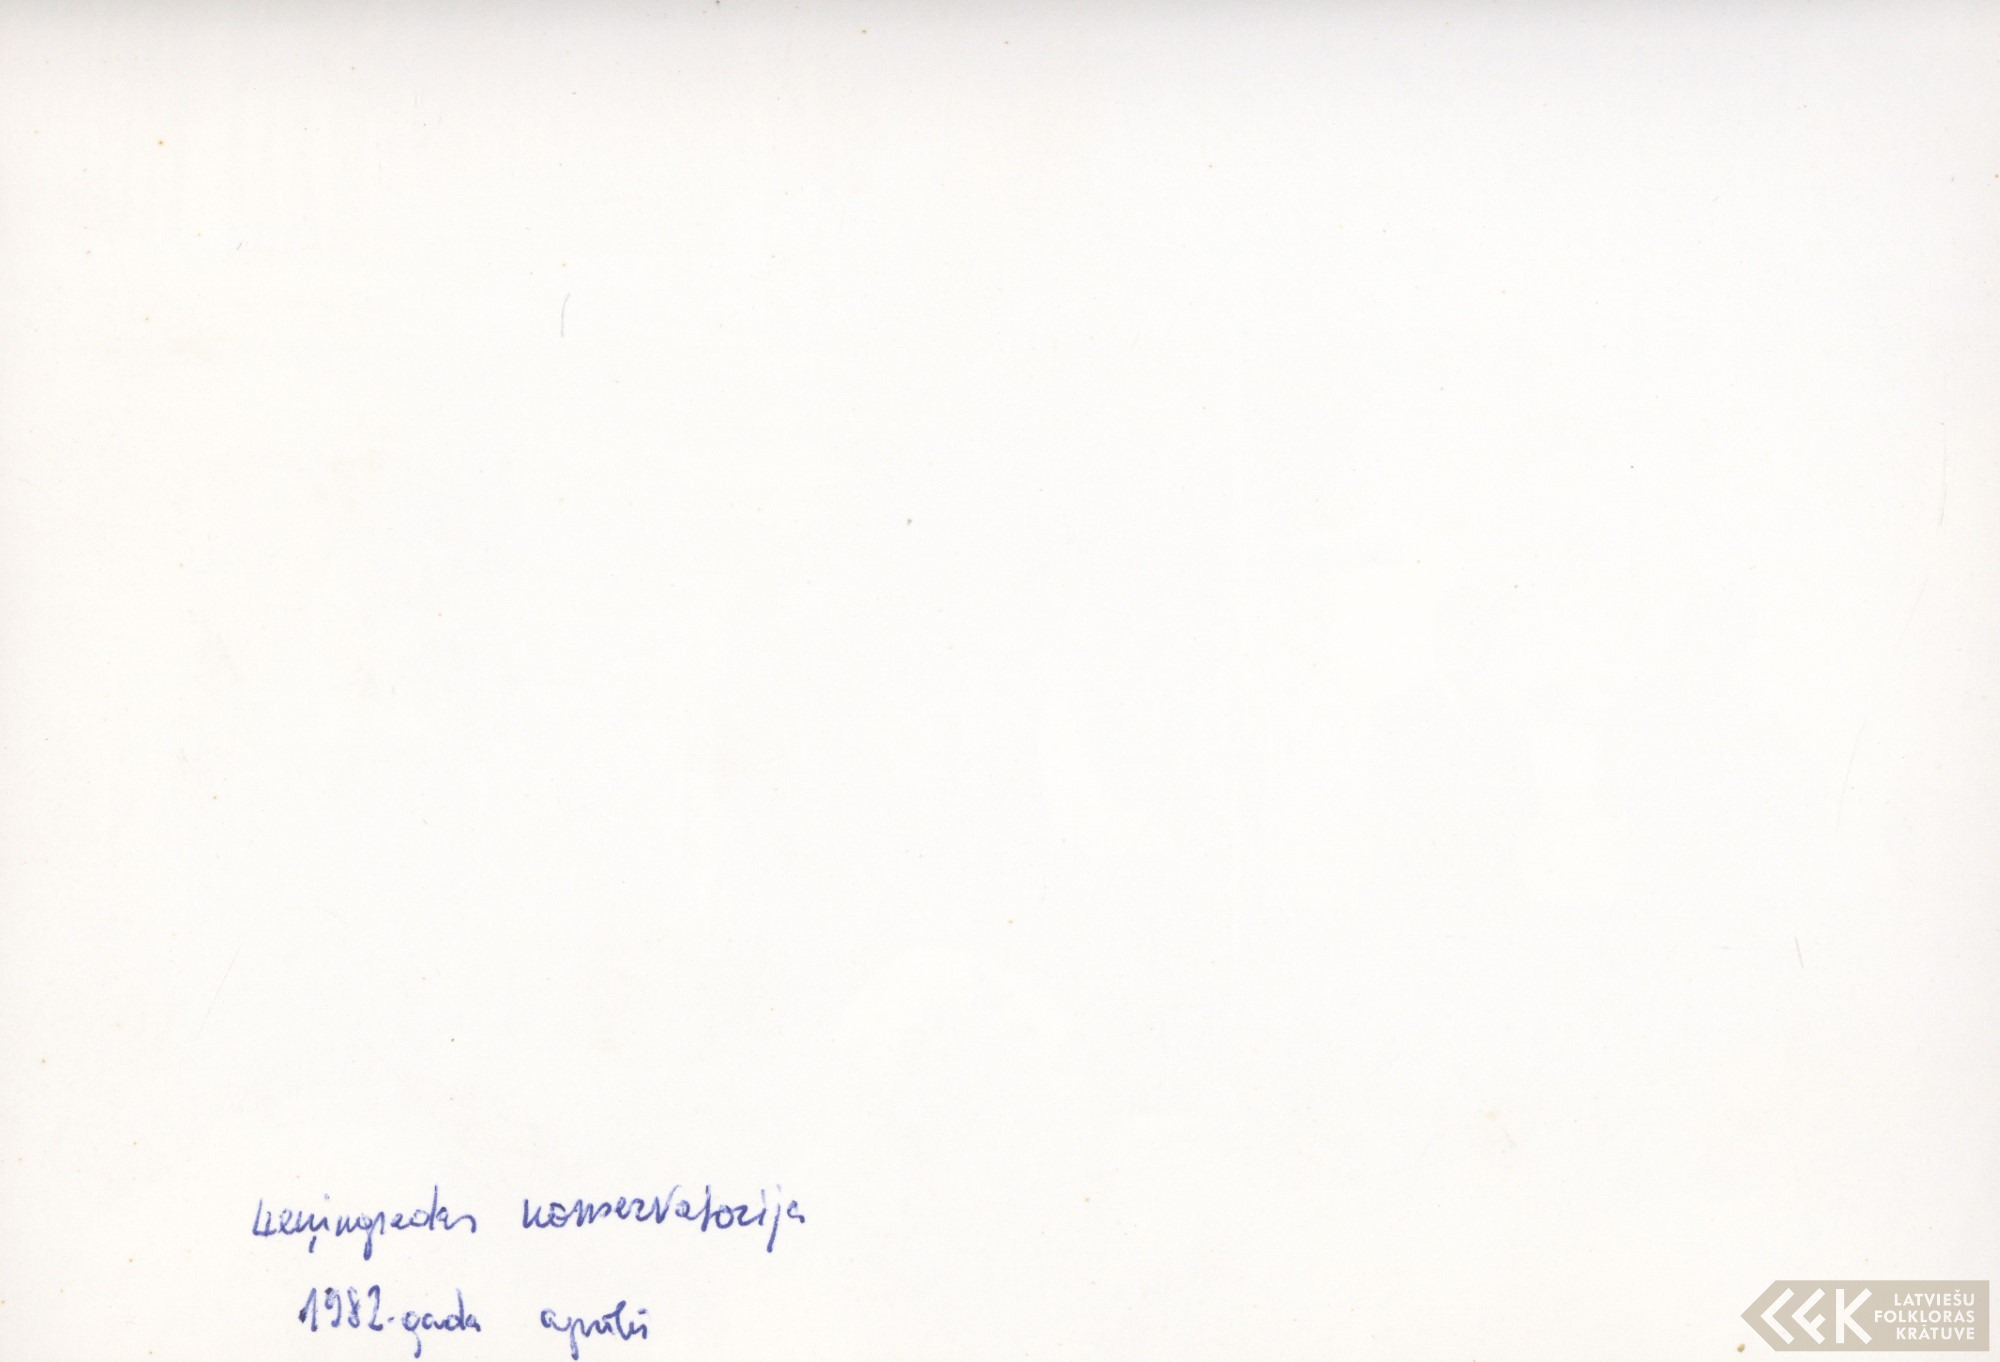 Ļeņingradas konservatorija
1982. gada aprīlis
LATVIEŠU
FOLKLORAS
KRĀTUVE